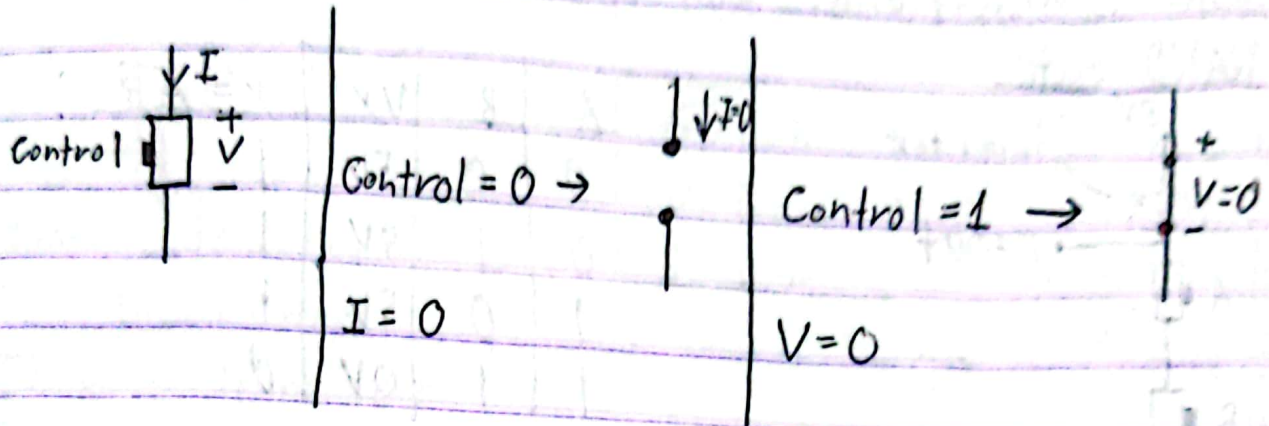 I
Control
+
V
-
Control = 0 →
I = 0
Control = 1 →
+
V=0
-
V = 0